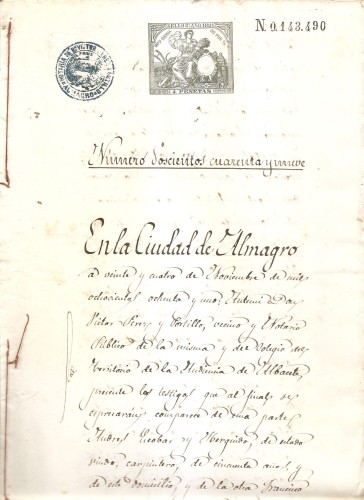 N. 0.143.490
4 PESETAS
Número Doscientos cuarenta y nueve
En la Ciudad de Almagro
a veinte y cuatro de Noviembre de mil
ochocientos ochenta y uno: Ante mi Don
Victor Perez y Portillo, vecino y Notario
Público de la misma y del Colegio del
territorio de la Audiencia de Albacete,
presente los testigos que al final se
espresarán, comparecen de una parte
Andres Escobar y de estado
viudo, carpintero, de cincuenta años, y
de este domicilio, y de la otra Francisco